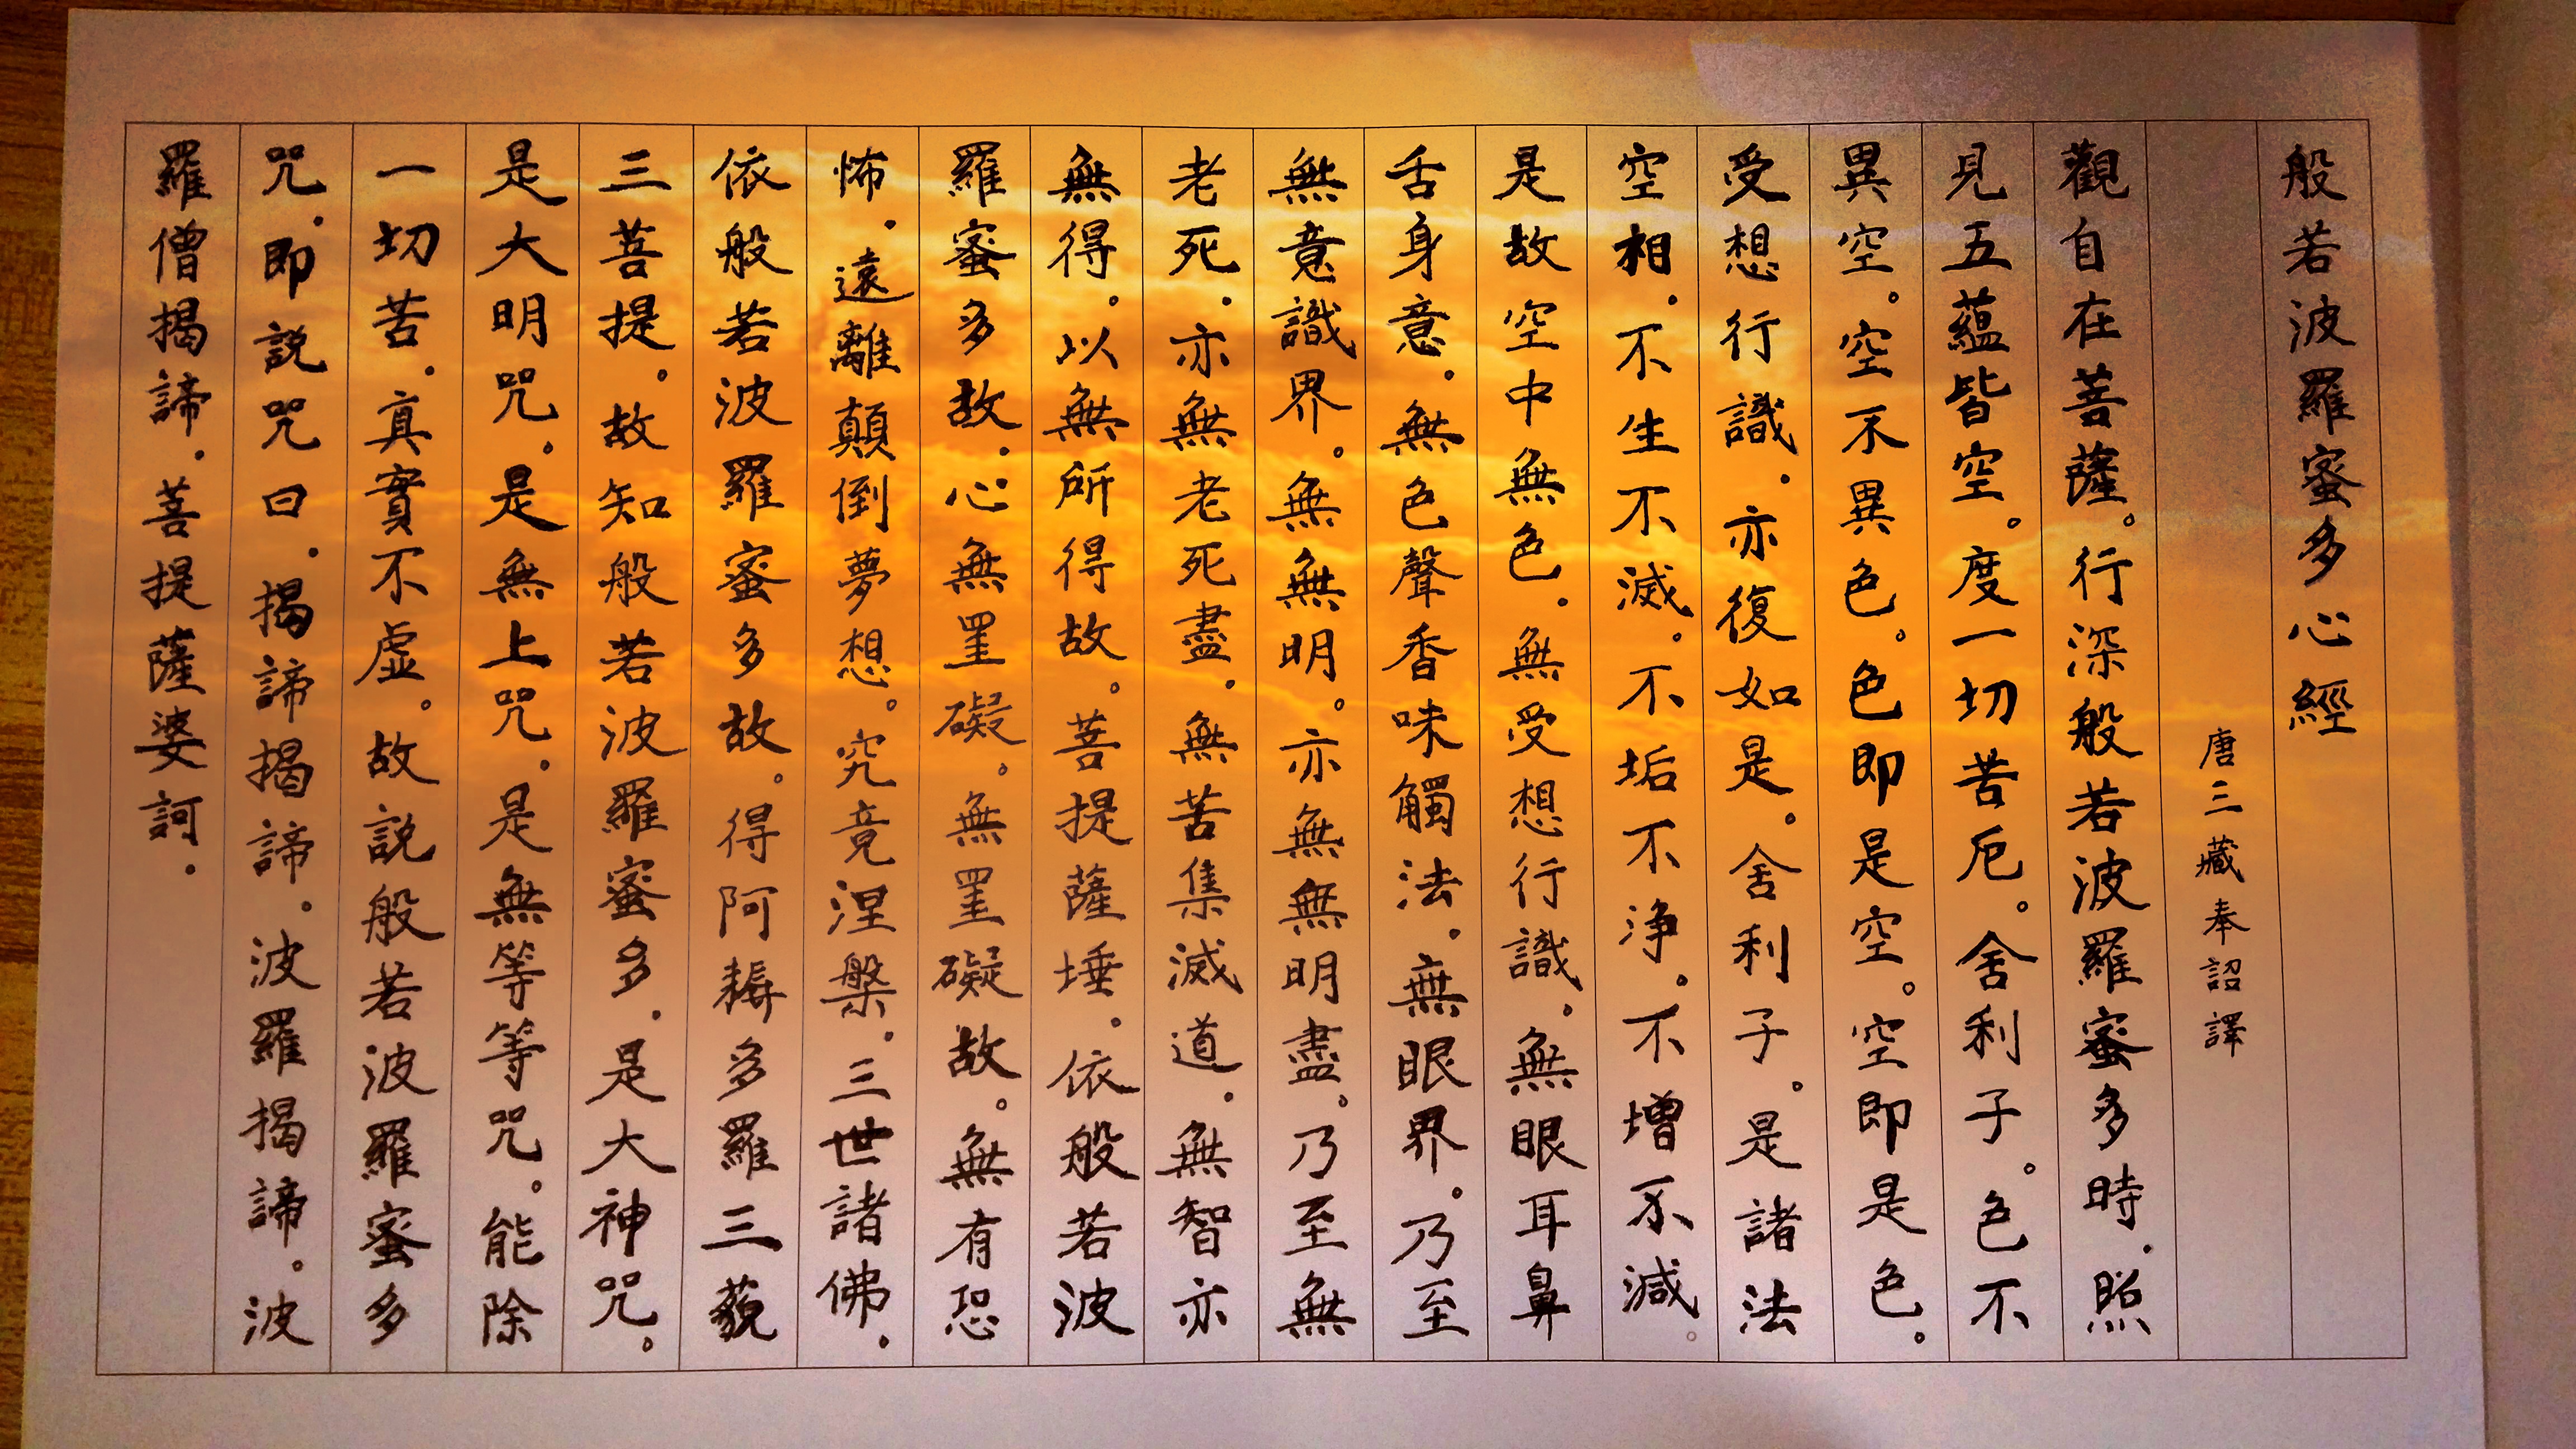 般若波羅蜜多心經
唐三藏奉詔譯
觀自在菩薩。行深般若波羅蜜多時。照
見五蘊皆空。度一切苦厄。舍利子。色不
異空。空不異色。色即是空。空即是色。
受想行識。亦復如是。舍利子。是諸法
空相。不生不滅。不垢不淨。不增不減。
是故空中無色。無受想行識。無眼耳鼻
舌身意。無色聲香味觸法。無眼界。乃至
無意識界。無無明。亦無無明盡。乃至無
老死。亦無老死盡。無苦集滅道。無智亦
無得。以無所得故。菩提薩埵。依般若波
羅蜜多故。心無罣礙。無罣礙故。無有恐
怖。遠離顛倒夢想。究竟涅槃。三世諸佛。
依般若波羅蜜多故。得阿耨多羅三藐
三菩提。故知般若波羅蜜多。是大神咒。
是大明咒。是無上咒。是無等等咒。能除
一切苦。真實不虛。故說般若波羅蜜多
咒。即說咒曰。揭諦揭諦。波羅揭諦。波
羅僧揭諦。菩提薩婆訶。